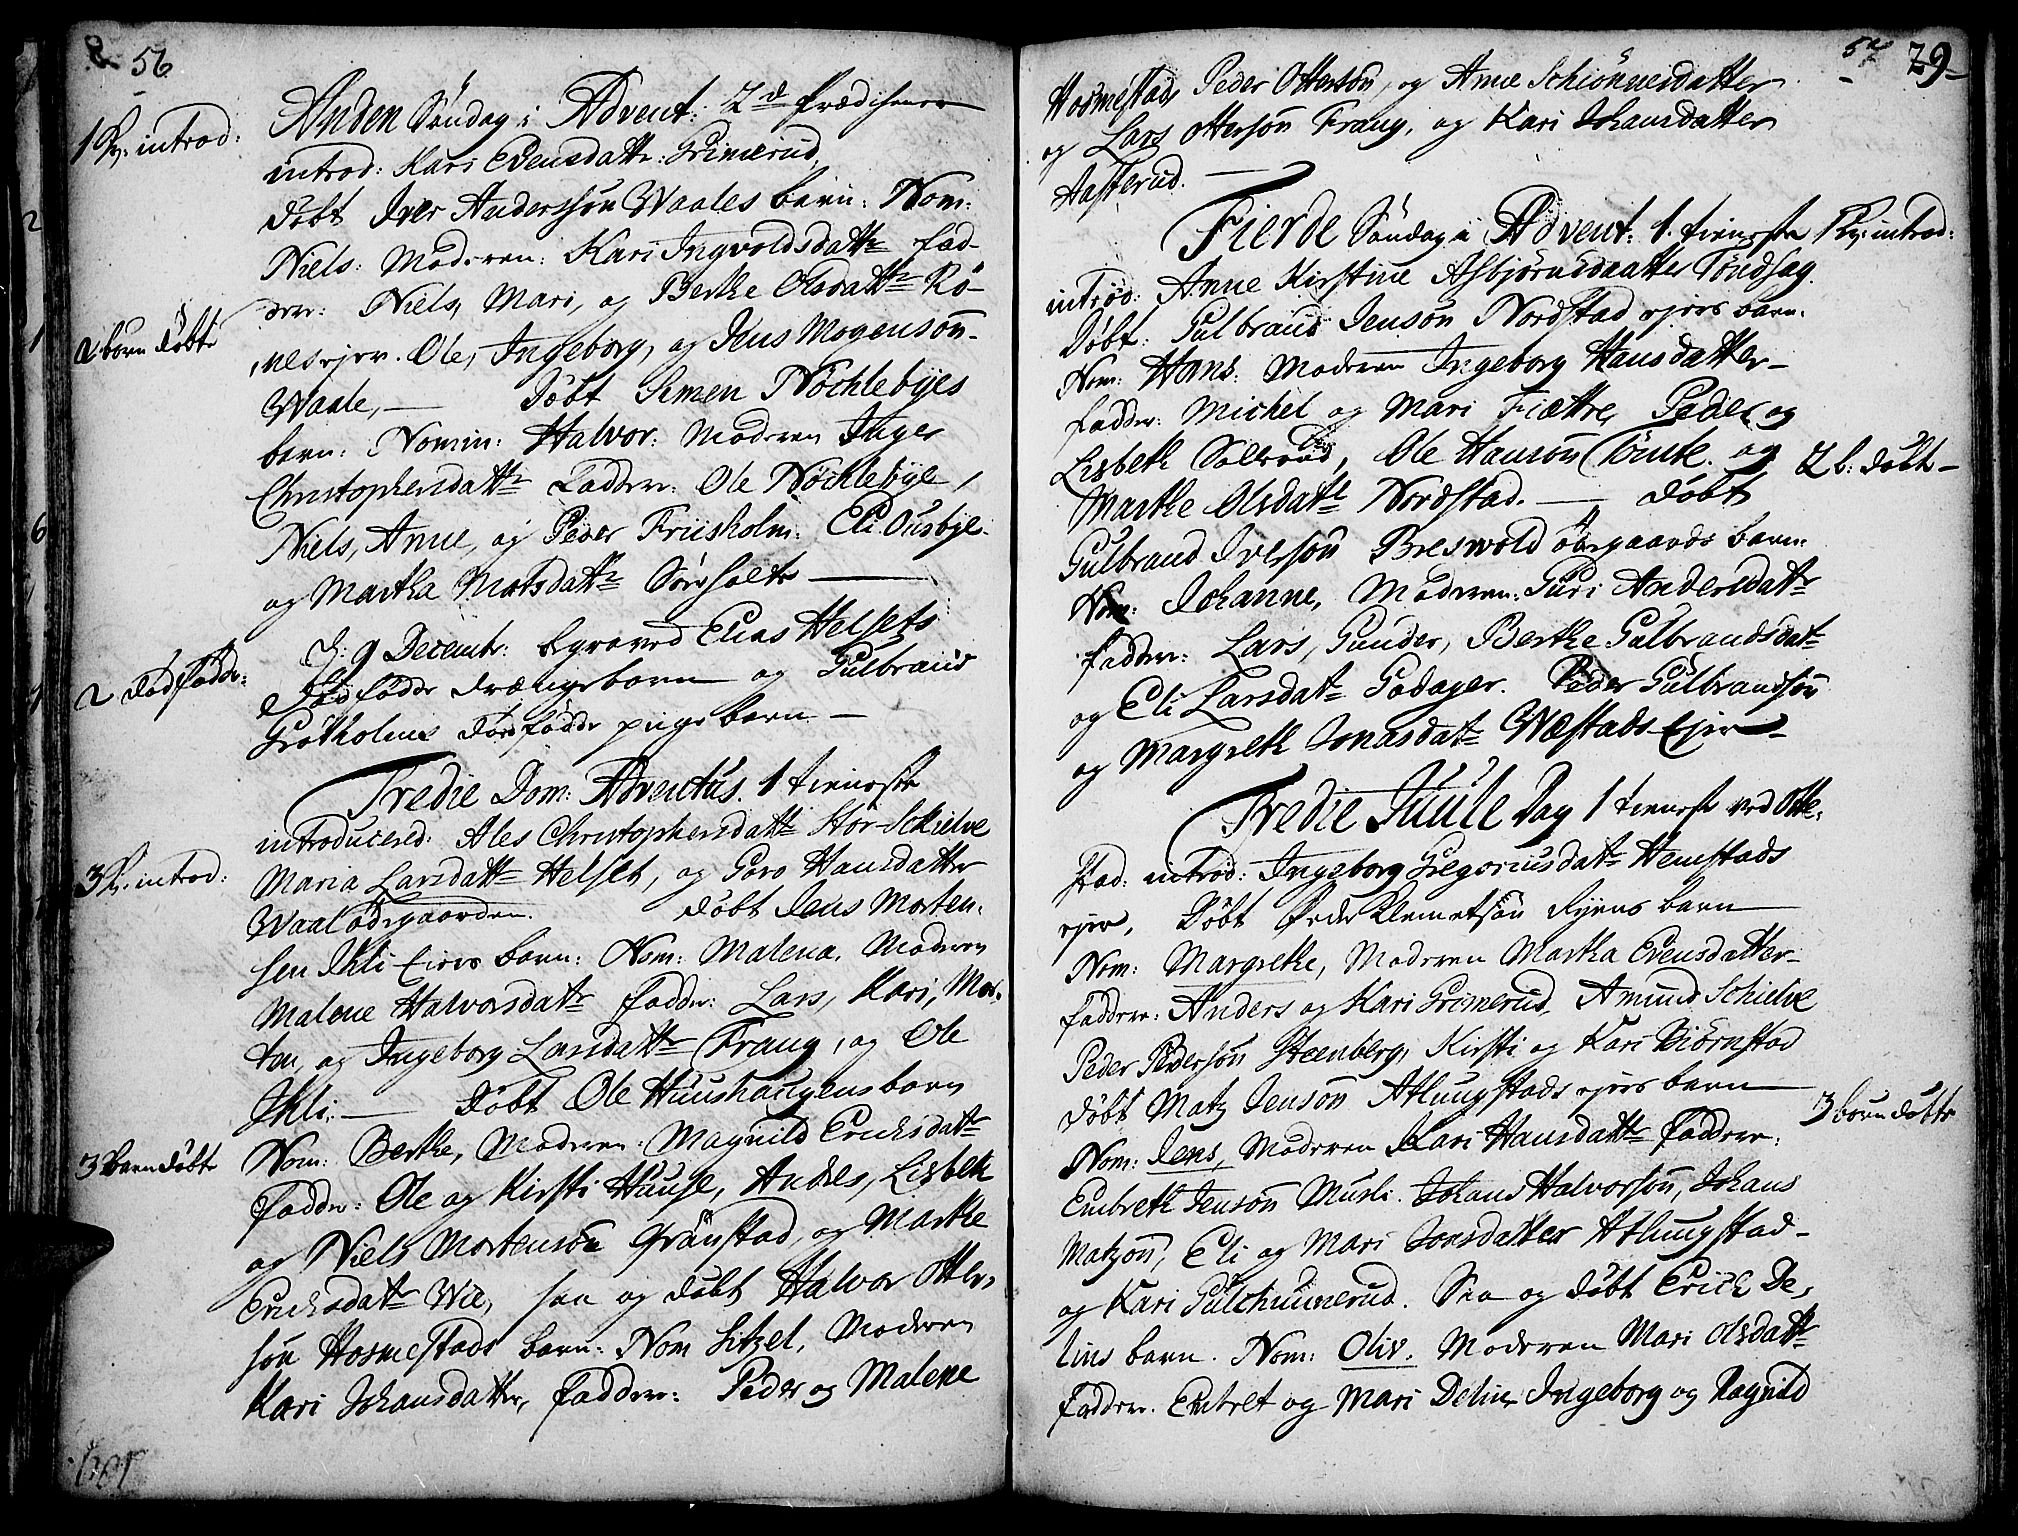 56
1 K: introd:
Anden Søndag i Advent: 2d Prædichener
introd: Kari Evensdattr: Grimerud,
Døbt Iver Anderssøn Waales barn: Nom:
Niels: Moderen: Kari Ingvoldsdattr fad-
dere: Niels, Mari, og Berthe Olsdattr Rö-
nes ejer. Ole, Ingeborg, og Jens Mogensøn
2 børn døbt
Waale, — Døbt Simen Nöchlebyes
barn: Nomin: Halvor: Moderen Inger
Christophersdattr Faddere: Ole Nöchlebye,
Niels, Anne, og Peder Friisholm: Eli Ousbye
og Martha Matsdattr Sörholte —
D: 9 Decembr: begraved Elias Helsets
2 dødfødde:
dødfødde drængebarn og Gulbrand
Grötholms dødfødde pigebarn —
Tredie Dom: Adventus. 1 tieneste
introducered: Ales Christophersdattr Stor-Schielve
3 K: introd:
Maria Larsdattr Helset, og Goro Hansdatter
Waalødegaarden. Døbt Jens Morten-
sen Ihli Ejers barn: Nom: Malena, Moderen
Malene Halvorsdatr fadder: Lars, Kari, Mor-
ten, og Ingeborg Larsdattr Frang, og Ole
Ihli. — Døbt Ole Huushaugens barn
3 Børn døbt
Nom: Berthe, Moderen: Magnild Erichsdattr
fadder: Ole og Kirsti Huuse, Anders, Lisbeth
og Niels Mortensøn Grönstad, og Marthe
Erichsdatr Wie, saa og døbt Halvor Otter-
søn Hosmestads barn: Nom Sitzel, Moderen
Kari Johansdatter, faddere: Peder og Malene
29
Hosmestad, Peder Ottersøn, og Anne Schiönnesdatter
og Lars Ottersøn Frang, og Kari Johansdatter
Aasterud. —
Fierde Søndag i Advent: 1. tieneste
1 K: introd:
introd: Anne Kirstine Asbjörnsdaatter Töndsag.
Døbt: Gulbrand Jensøn Nordstad ejers barn:
Nom: Hans: Moderen Ingeborg Hansdatter
fadder: Michel og Mari Fiættre, Peder og
Lisbeth Solleraad, Ole Hansøn Tömte og
2 b: døbt
Marthe Olsdatr Nordstad. — Døbt
Gulbrand Iversøn Breswold ødegaards barn:
Nom: Johanne, Moderen: Guri Andersdatr
faddere: Lars, Gunder, Berthe Gulbrandsdatr
og Eli Larsdatr Godager. Peder Gulbrandsøn
og Margreth Jonasdatr Wæstads Ejer
Tredie Juule Dag 1 tieneste ved Otte-
stad: introd: Ingeborg Gregoriusdatr Hemstads
ejer, Døbt Peder Clemetsøn Ryens barn
Nom: Margrethe, Moderen Martha Evensdatter
faddere: Anders og Kari Grimerud, Amund Schielve
Peder Pedersøn Steenberg, Kirsti og Kari Biörnstad
Døbt Matz Jensøn Atlungstads ejers barn
3 børn døbt
Nom: Jens, Moderen Kari Hansdattr faddere:
Embreth Jensøn Musli. Johans Halvorsøn, Johans
Matzøn, Eli og Mari Jonsdatter Atlungstad
og Kari Gulchunnerud. Saa og døbt Erich De-
lins barn. Nom: Oliv. Moderen Mari Olsdattr
faddere. Embret og Mari Delin, Ingeborg og Ragnild